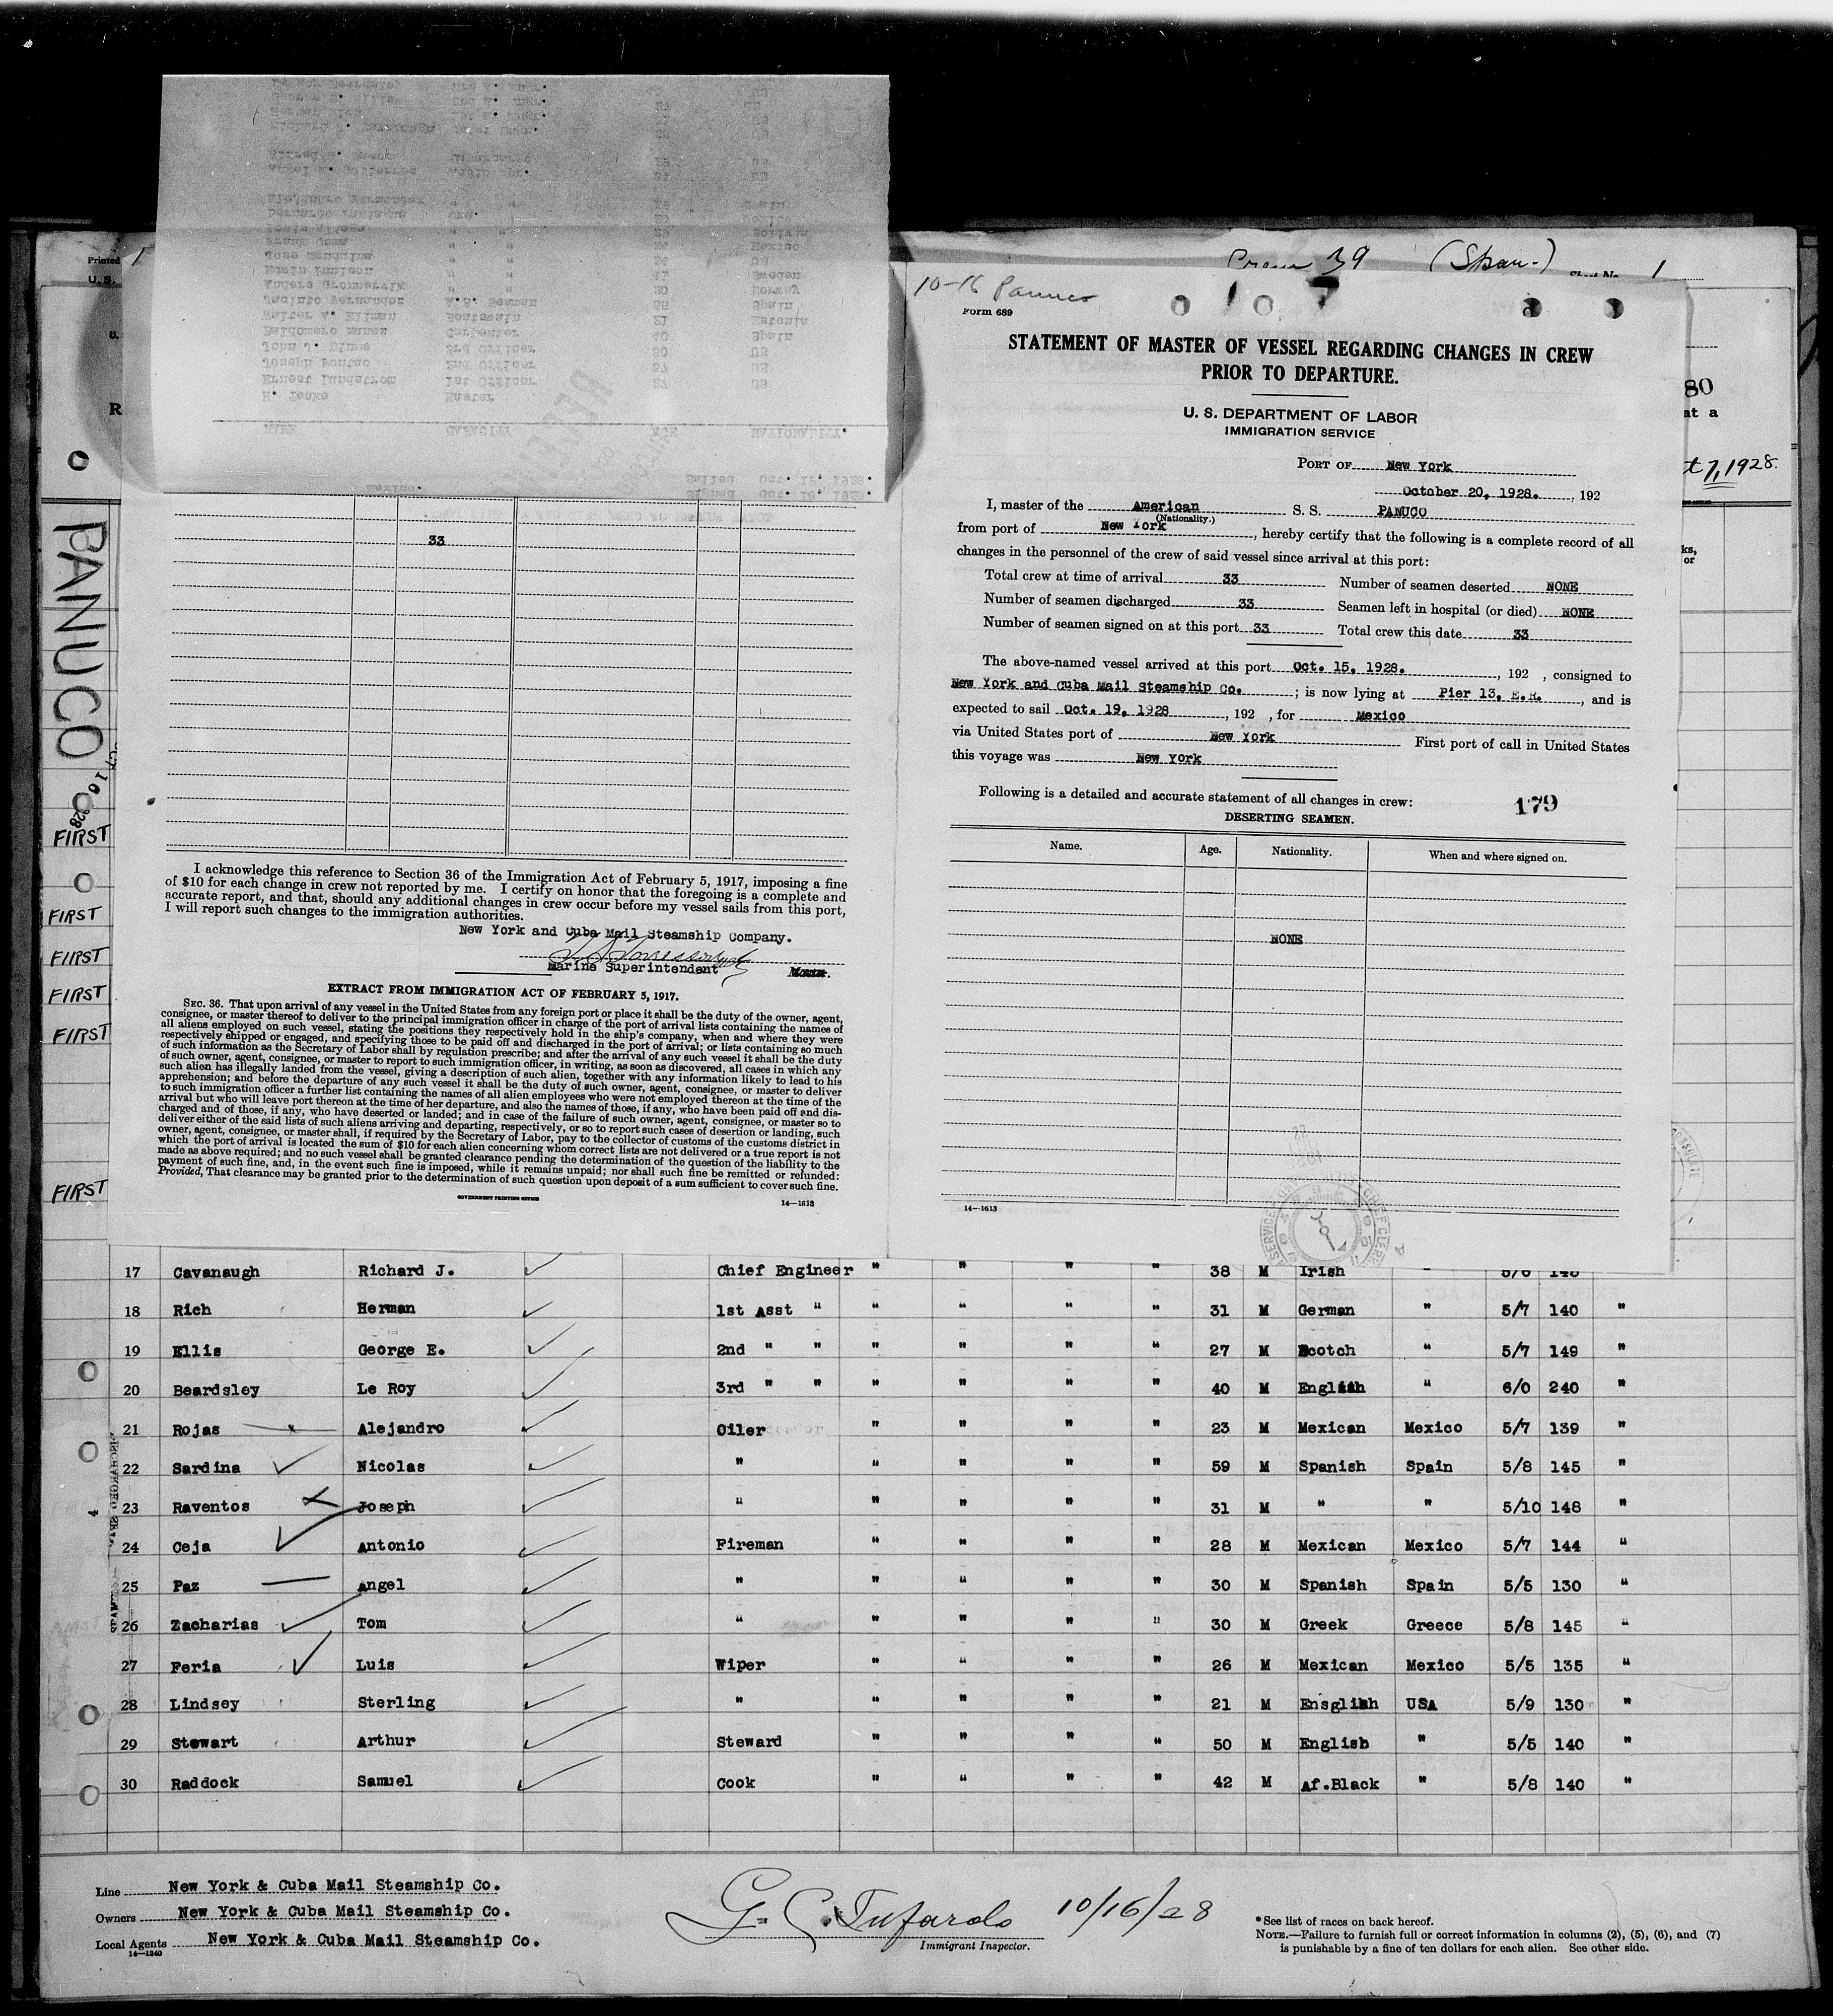 Crew 39 (Span-)
1
10-16 Panuco
Form 689
STATEMENT OF MASTER OF VESSEL REGARDING CHANGES IN CREW
PRIOR TO DEPARTURE.
U. S. DEPARTMENT OF LABOR
IMMIGRATION SERVICE
PORT OF New York
October 20, 1928. , 192
I, master of the American S. S. PANUCO
(Nationality.)
from port of New York , hereby certify that the following is a complete record of all
changes in the personnel of the crew of said vessel since arrival at this port:
Total crew at time of arrival 33 Number of seamen deserted NONE
Number of seamen discharged 33 Seamen left in hospital (or died) NONE
Number of seamen signed on at this port 33 Total crew this date 33
The above-named vessel arrived at this port Oct. 15, 1928. , 192 , consigned to
New York and Cuba Mail Steamship Co. ; is now lying at Pier 13, E.R. , and is
expected to sail Oct. 19, 1928 , 192 , for Mexico
via United States port of New York First port of call in United States
this voyage was New York
Following is a detailed and accurate statement of all changes in crew:
179
DESERTING SEAMEN.
Name. Age. Nationality. When and where signed on.
NONE
14—1613
Printed
U. S.
80
at a
t 7, 1928.
ks,
or
PANUCO
FIRST
FIRST
FIRST
FIRST
FIRST
FIRST
33
I acknowledge this reference to Section 36 of the Immigration Act of February 5, 1917, imposing a fine
of $10 for each change in crew not reported by me. I certify on honor that the foregoing is a complete and
accurate report, and that, should any additional changes in crew occur before my vessel sails from this port,
I will report such changes to the immigration authorities.
New York and Cuba Mail Steamship Company.
Marine Superintendent
EXTRACT FROM IMMIGRATION ACT OF FEBRUARY 5, 1917.
SEC. 36. That upon arrival of any vessel in the United States from any foreign port or place it shall be the duty of the owner, agent,
consignee, or master thereof to deliver to the principal immigration officer in charge of the port of arrival lists containing the names of
all aliens employed on such vessel, stating the positions they respectively hold in the ship's company, when and where they were
respectively shipped or engaged, and specifying those to be paid off and discharged in the port of arrival; or lists containing so much
of such information as the Secretary of Labor shall by regulation prescribe; and after the arrival of any such vessel it shall be the duty
of such owner, agent, consignee, or master to report to such immigration officer, in writing, as soon as discovered, all cases in which any
such alien has illegally landed from the vessel, giving a description of such alien, together with any information likely to lead to his
apprehension; and before the departure of any such vessel it shall be the duty of such owner, agent, consignee, or master to deliver
to such immigration officer a further list containing the names of all alien employees who were not employed thereon at the time of the
arrival but who will leave port thereon at the time of her departure, and also the names of those, if any, who have been paid off and dis-
charged and of those, if any, who have deserted or landed; and in case of the failure of such owner, agent, consignee, or master so to
deliver either of the said lists of such aliens arriving and departing, respectively, or so to report such cases of desertion or landing, such
owner, agent, consignee, or master shall, if required by the Secretary of Labor, pay to the collector of customs of the customs district in
which the port of arrival is located the sum of $10 for each alien concerning whom correct lists are not delivered or a true report is not
made as above required; and no such vessel shall be granted clearance pending the determination of the question of the liability to the
payment of such fine, and, in the event such fine is imposed, while it remains unpaid; nor shall such fine be remitted or refunded:
Provided, That clearance may be granted prior to the determination of such question upon deposit of a sum sufficient to cover such fine.
GOVERNMENT PRINTING OFFICE 14—1613
17 Cavanaugh Richard J. Chief Engineer " " " " 38 M Irish "
18 Rich Herman 1st Asst " " " " " 31 M German " 5/7 140 "
19 Ellis George E. 2nd " " " " " " 27 M Scotch " 5/7 149 "
20 Beardsley Le Roy 3rd " " " " " " 40 M English " 6/0 240 "
21 Rojas Alejandro Oiler " " " " 23 M Mexican Mexico 5/7 139 "
22 Sardina Nicolas " " " " " 59 M Spanish Spain 5/8 145 "
23 Raventos Joseph " " " " " 31 M " " 5/10 148 "
24 Ceja Antonio Fireman " " " " 28 M Mexican Mexico 5/7 144 "
25 Paz Angel " " " " " 30 M Spanish Spain 5/5 130 "
26 Zacharias Tom " " " " " 30 M Greek Greece 5/8 145 "
27 Feria Luis Wiper " " " " 26 M Mexican Mexico 5/5 135 "
28 Lindsey Sterling " " " " " 21 M Ensglish USA 5/9 130 "
29 Stewart Arthur Steward " " " " 50 M English " 5/5 140 "
30 Raddock Samuel Cook " " " " 42 M Af.Black " 5/8 140 "
Line New York & Cuba Mail Steamship Co.
Owners New York & Cuba Mail Steamship Co.
Local Agents New York & Cuba Mail Steamship Co.
14—1240
G. C. Tufarolo 10/16/28
Immigrant Inspector.
* See list of races on back hereof.
NOTE.—Failure to furnish full or correct information in columns (2), (5), (6), and (7)
is punishable by a fine of ten dollars for each alien. See other side.